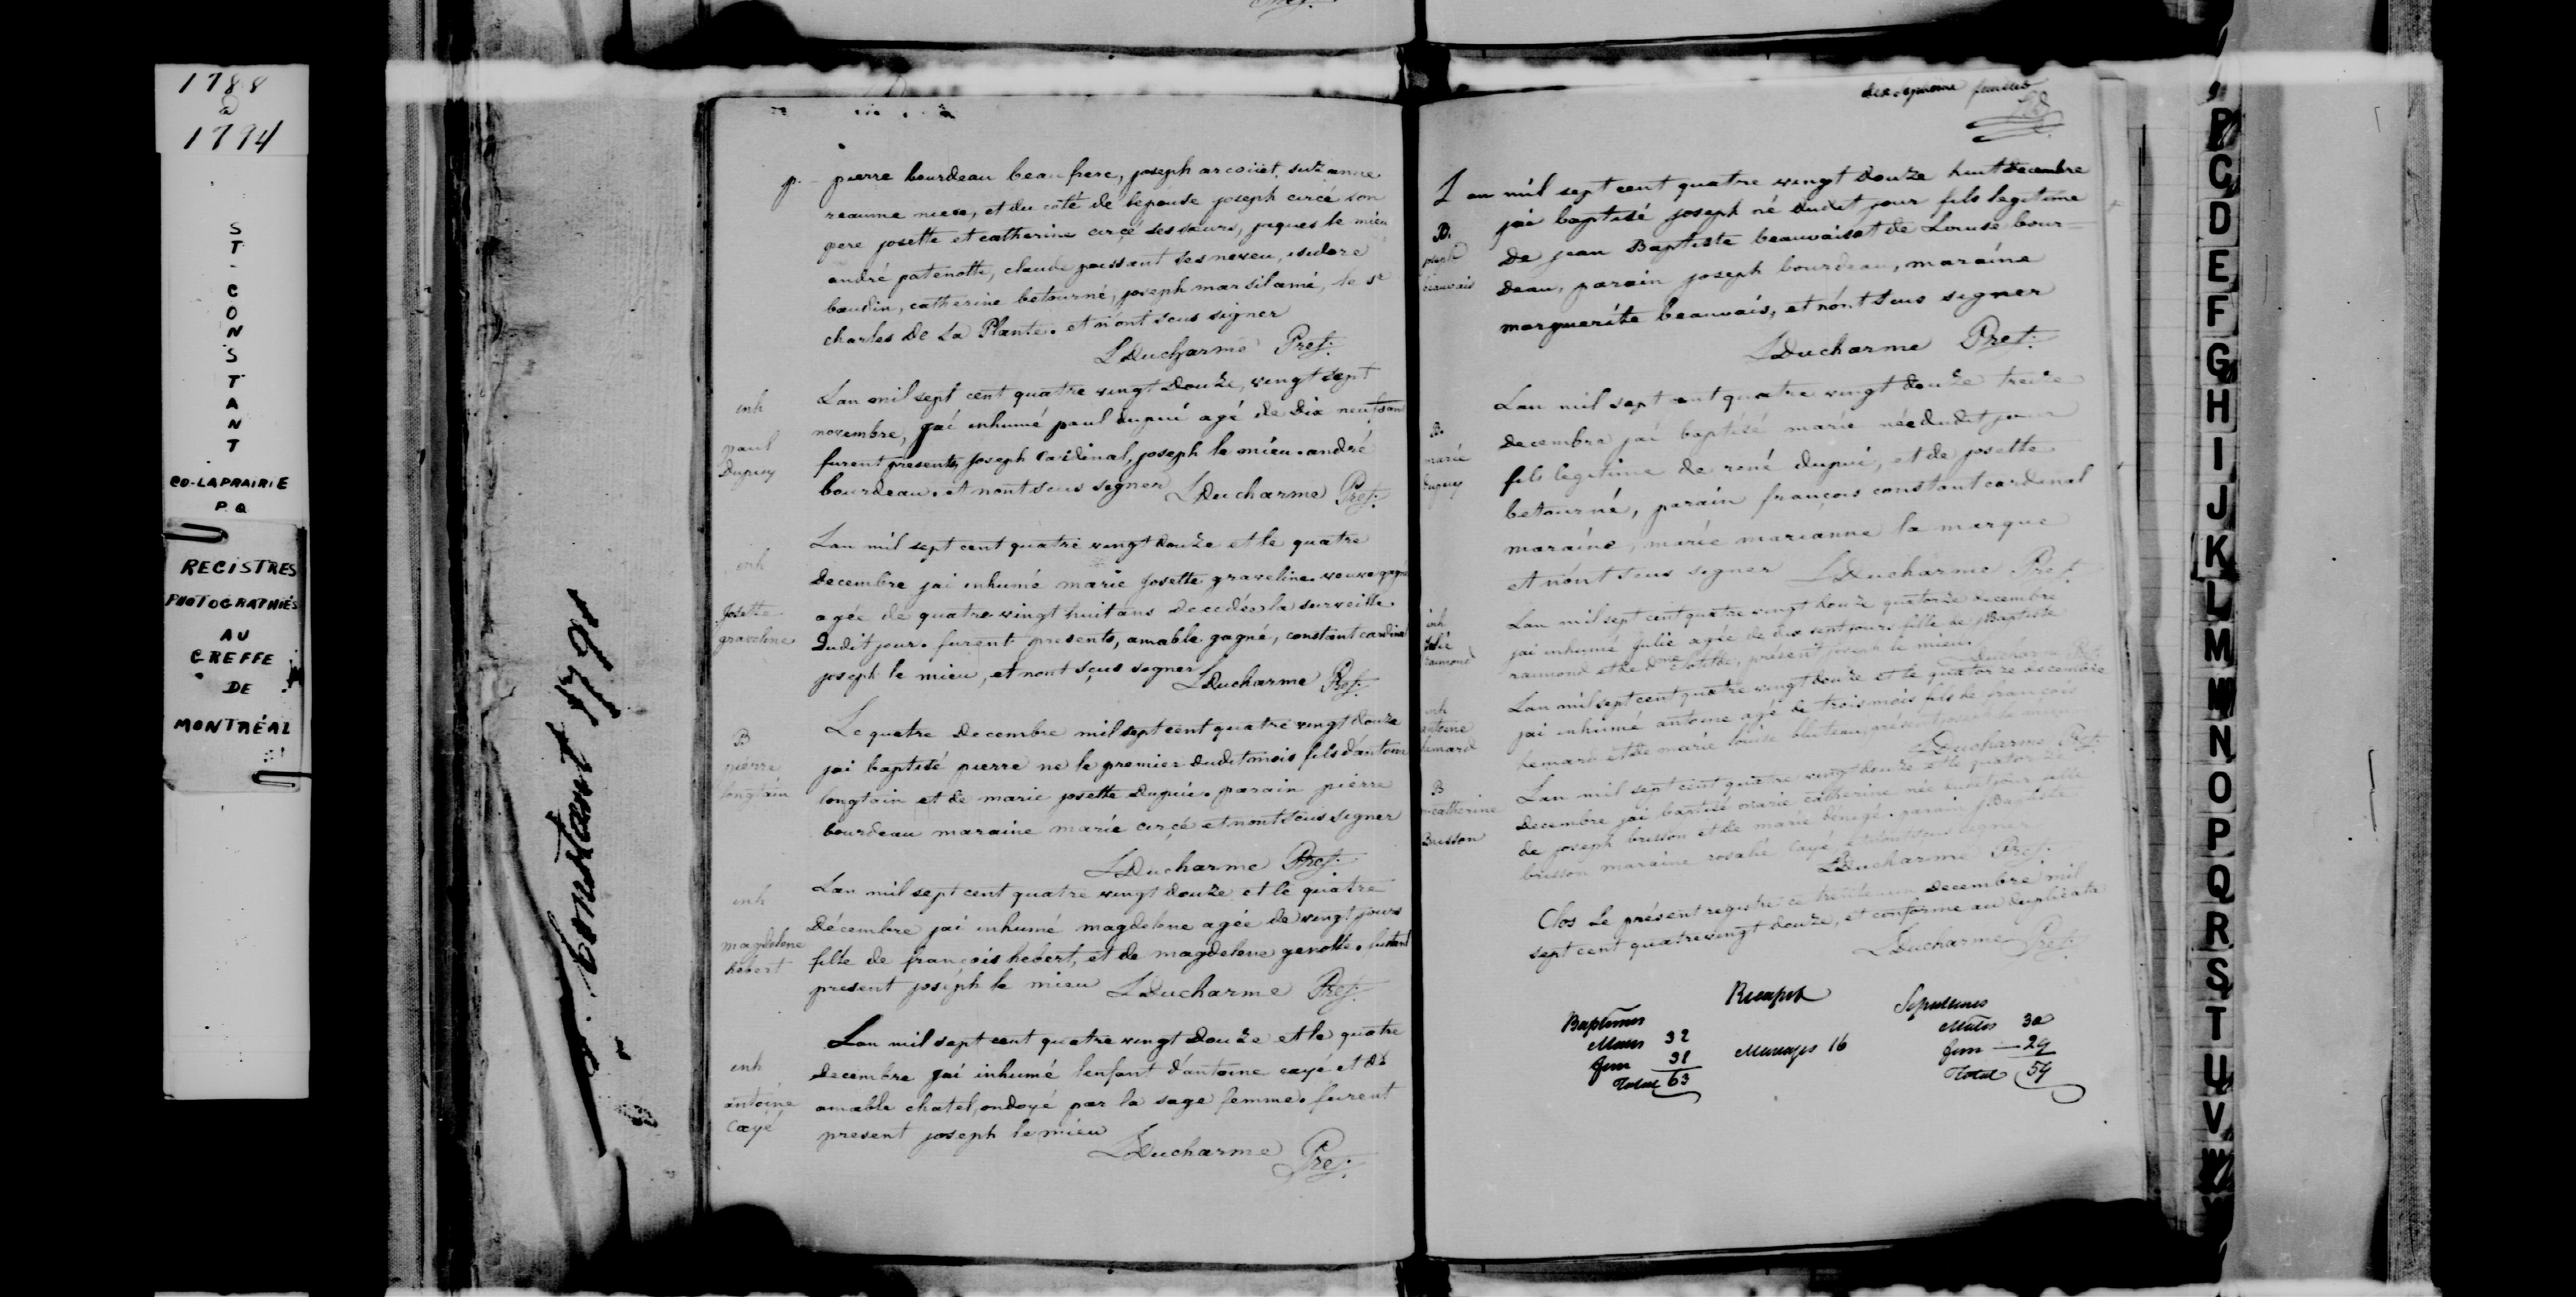 1788
à
1794
ST-CONSTANT
CO-LAPRAIRIE
P.Q
REGISTRES
PHOTOGRAPHIÉS
AU
GREFFE
DE
MONTRÉAL
St. Constant 1792
p. pierre bourdeau beaufrere, joseph arcoüet, suzanne
reaume niece, et du coté de lepouse joseph circé son
pere josette et catherine circé ses sœurs, jaques le mieu
andré patenotte, claude poissant ses neveu, isidore
baudin, catherine betourné, joseph marsil amé, le sr
charles De La Plante. et n'ont sçus signer
LDucharme Pret.
inh
paul
Dupuy
Lan mil sept cent quatre vingt douze, vingt sept
novembre, jai inhumé paul dupui agé de dix neuf ans
furent presents joseph Cardinal, joseph le mieu. andré
bourdeau. et n'ont sçus signer LDucharme Pret.
inh
Josette
graveline
Lan mil sept cent quatre vingt douze et le quatre
Decembre jai inhumé marie Josette graveline veuve gagné
agée de quatre vingt huit ans decedée la surveille
dudit jour. furent presents, amable gagné, constant cardinal
joseph le mieu, et n'ont sçus signer LDucharme Pret.
B
pierre
longtain
Le quatre Decembre mil sept cent quatre vingt douze
jai baptisé pierre né le premier dudit mois fils d'antoine
longtain et de marie josette dupuie. parain pierre
bourdeau maraine marie circé et n'ont sçus signer
LDucharme Pret.
inh
magdelene
hebert
Lan mil sept cent quatre vingt douze et le quatre
Décembre jai inhumé magdelene agée de vingt jours
fille de françois hebert, et de magdelene genotte.
present joseph le mieu LDucharme Pret.
inh
antoine
Cayé
Lan mil sept cent quatre vingt douze et le quatre
decembre jai inhumé lenfant d'antoine cayé et de
amable chatel, ondoyé par la sage femme. furent
present joseph le mieu
LDucharme Pret.
dix septieme feuillet
Lan mil sept cent quatre vingt douze huit decembre
B.
joseph
beauvais
jai baptisé joseph né dudit jour fils legitime
De jean Baptiste beauvais et de Louise bour=
deau, parain joseph bourdeau, maraine
marguerite beauvais, et n'ont sçus signer
LDucharme Pret.
B.
marie
dupuy
Lan mil sept cent quatre vingt douze treize
decembre jai baptisé marie née dudit jour
fils legitime de rené dupui, et de josette
betourné, parain françois constant cardinal
maraine, marie marianne la marque
et n'ont sçus signer LDucharme Pret.
inh
Julie
raimond
Lan mil sept cent quatre vingt douze quatorze decembre
jai inhumé Julie agée de dix sept jours fille de jBaptiste
raimond et de, présent joseph le mieu.
LDucharme Pret.
inh
antoine
hemard
Lan mil sept cent quatre vingt douze et le quatorze decembre
jai inhumé antoine agé de trois mois fils de françois
hemard et de marie louise bluteau, présent joseph le mieu
LDucharme Pret.
B
mcatherine
Brisson
Lan mil sept cent quatre vingt douze et le quatorze
decembre jai baptisé marie catherine née dudit jour fille
de joseph brisson et de marie. parain jBaptiste
brisson maraine rosalie cayé, et n'ont sçus signer
LDucharme Pret.
Clos Le présent registre ce trente un decembre mil
sept cent quatre vingt douze, et conforme au duplicata
LDucharme Pret.
Recapit
Baptêmes
Mâles 32
fem 31
Total 63
Mariages 16
Sepultures
Mâles 30
fem 29
Total 59
P
C
D
E
F
G
H
I
J
K
L
M
N
O
P
Q
R
S
T
U
V
W